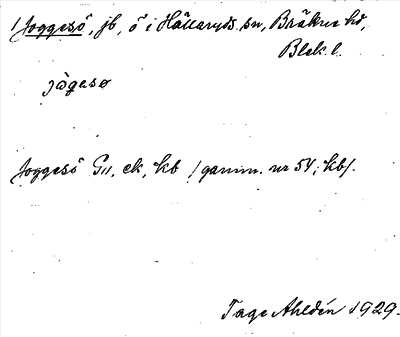 1 Joggesö, jb, ö i Hällaryds sn, Bräkne hd,
Blek. l.
jògesø
Joggesö G11, ek, kb /gamm. nr 54; kb/.
Tage Ahldén 1929.